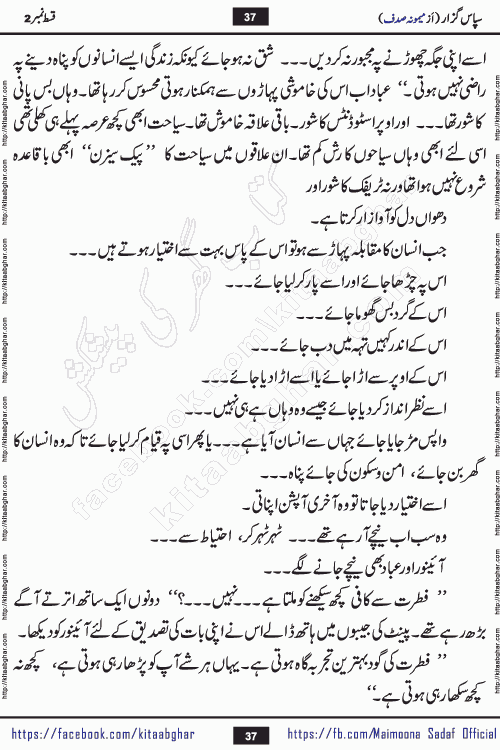 قسط نمبر 2
37
سپاس گزار (از میمونہ صدف)
اسے اپنی جگہ چھوڑنے پہ مجبور نہ کر دیں۔۔۔ شق نہ ہو جائے کیونکہ زندگی ایسے انسانوں کو پناہ دینے پہ
راضی نہیں ہوتی۔‘‘ عباد اب اس کی خاموشی پہاڑوں سے ہمکنار ہوتی محسوس کر رہا تھا۔ وہاں بس پانی
کا شور تھا۔۔۔ اور اوپر اسٹوڈنٹس کا شور۔ باقی علاقہ خاموش تھا۔ سیاحت ابھی کچھ عرصہ پہلے ہی کھلی تھی
اسی لئے ابھی وہاں سیاحوں کا رش کم تھا۔ ان علاقوں میں سیاحت کا ’’پیک سیزن‘‘ ابھی باقاعدہ
شروع نہیں ہوا تھا ورنہ ٹریفک کا شور اور
دھواں دل کو آواز ار کرتا ہے۔
جب انسان کا مقابلہ پہاڑ سے ہو تو اس کے پاس بہت سے اختیار ہوتے ہیں۔۔۔
اس پہ چڑھا جائے اور اسے پار کر لیا جائے۔۔۔
اس کے گرد بس گھوما جائے۔۔۔
اس کے اندر کہیں تہہ میں دب جائے۔۔۔
اس کے اوپر سے اڑا جائے یا اسے اڑا دیا جائے۔۔۔
اسے نظر انداز کر دیا جائے جیسے وہ وہاں ہے ہی نہیں۔۔۔
واپس مڑ جایا جائے جہاں سے انسان آیا ہے۔۔۔ یا پھر اسی پہ قیام کر لیا جائے تاکہ وہ انسان کا
گھر بن جائے، امن و سکون کی جائے پناہ۔۔۔
اسے اختیار دیا جاتا تو وہ آخری آپشن اپناتی۔
وہ سب اب نیچے آ رہے تھے۔۔۔ ٹھہر ٹھہر کر، احتیاط سے۔۔۔
آئینور اور عباد بھی نیچے جانے لگے۔۔۔
’’فطرت سے کافی کچھ سیکھنے کو ملتا ہے۔۔۔ نہیں۔۔۔؟‘‘ دونوں ایک ساتھ اترتے آگے
بڑھ رہے تھے۔ پینٹ کی جیبوں میں ہاتھ ڈالے اس نے اپنی بات کی تصدیق کے لئے آئینور کو دیکھا۔
’’فطرت کی گود بہترین تجربہ گاہ ہوتی ہے۔ یہاں ہر شے آپ کو پڑھا رہی ہوتی ہے، کچھ نہ
کچھ سکھا رہی ہوتی ہے۔‘‘
کتاب گھر کی پیشکش
facebook.com/kitaabghar
kitaabghar.com
http://kitaabghar.com
https://facebook.com/kitaabghar
37
https://fb.com/Maimoona Sadaf Official